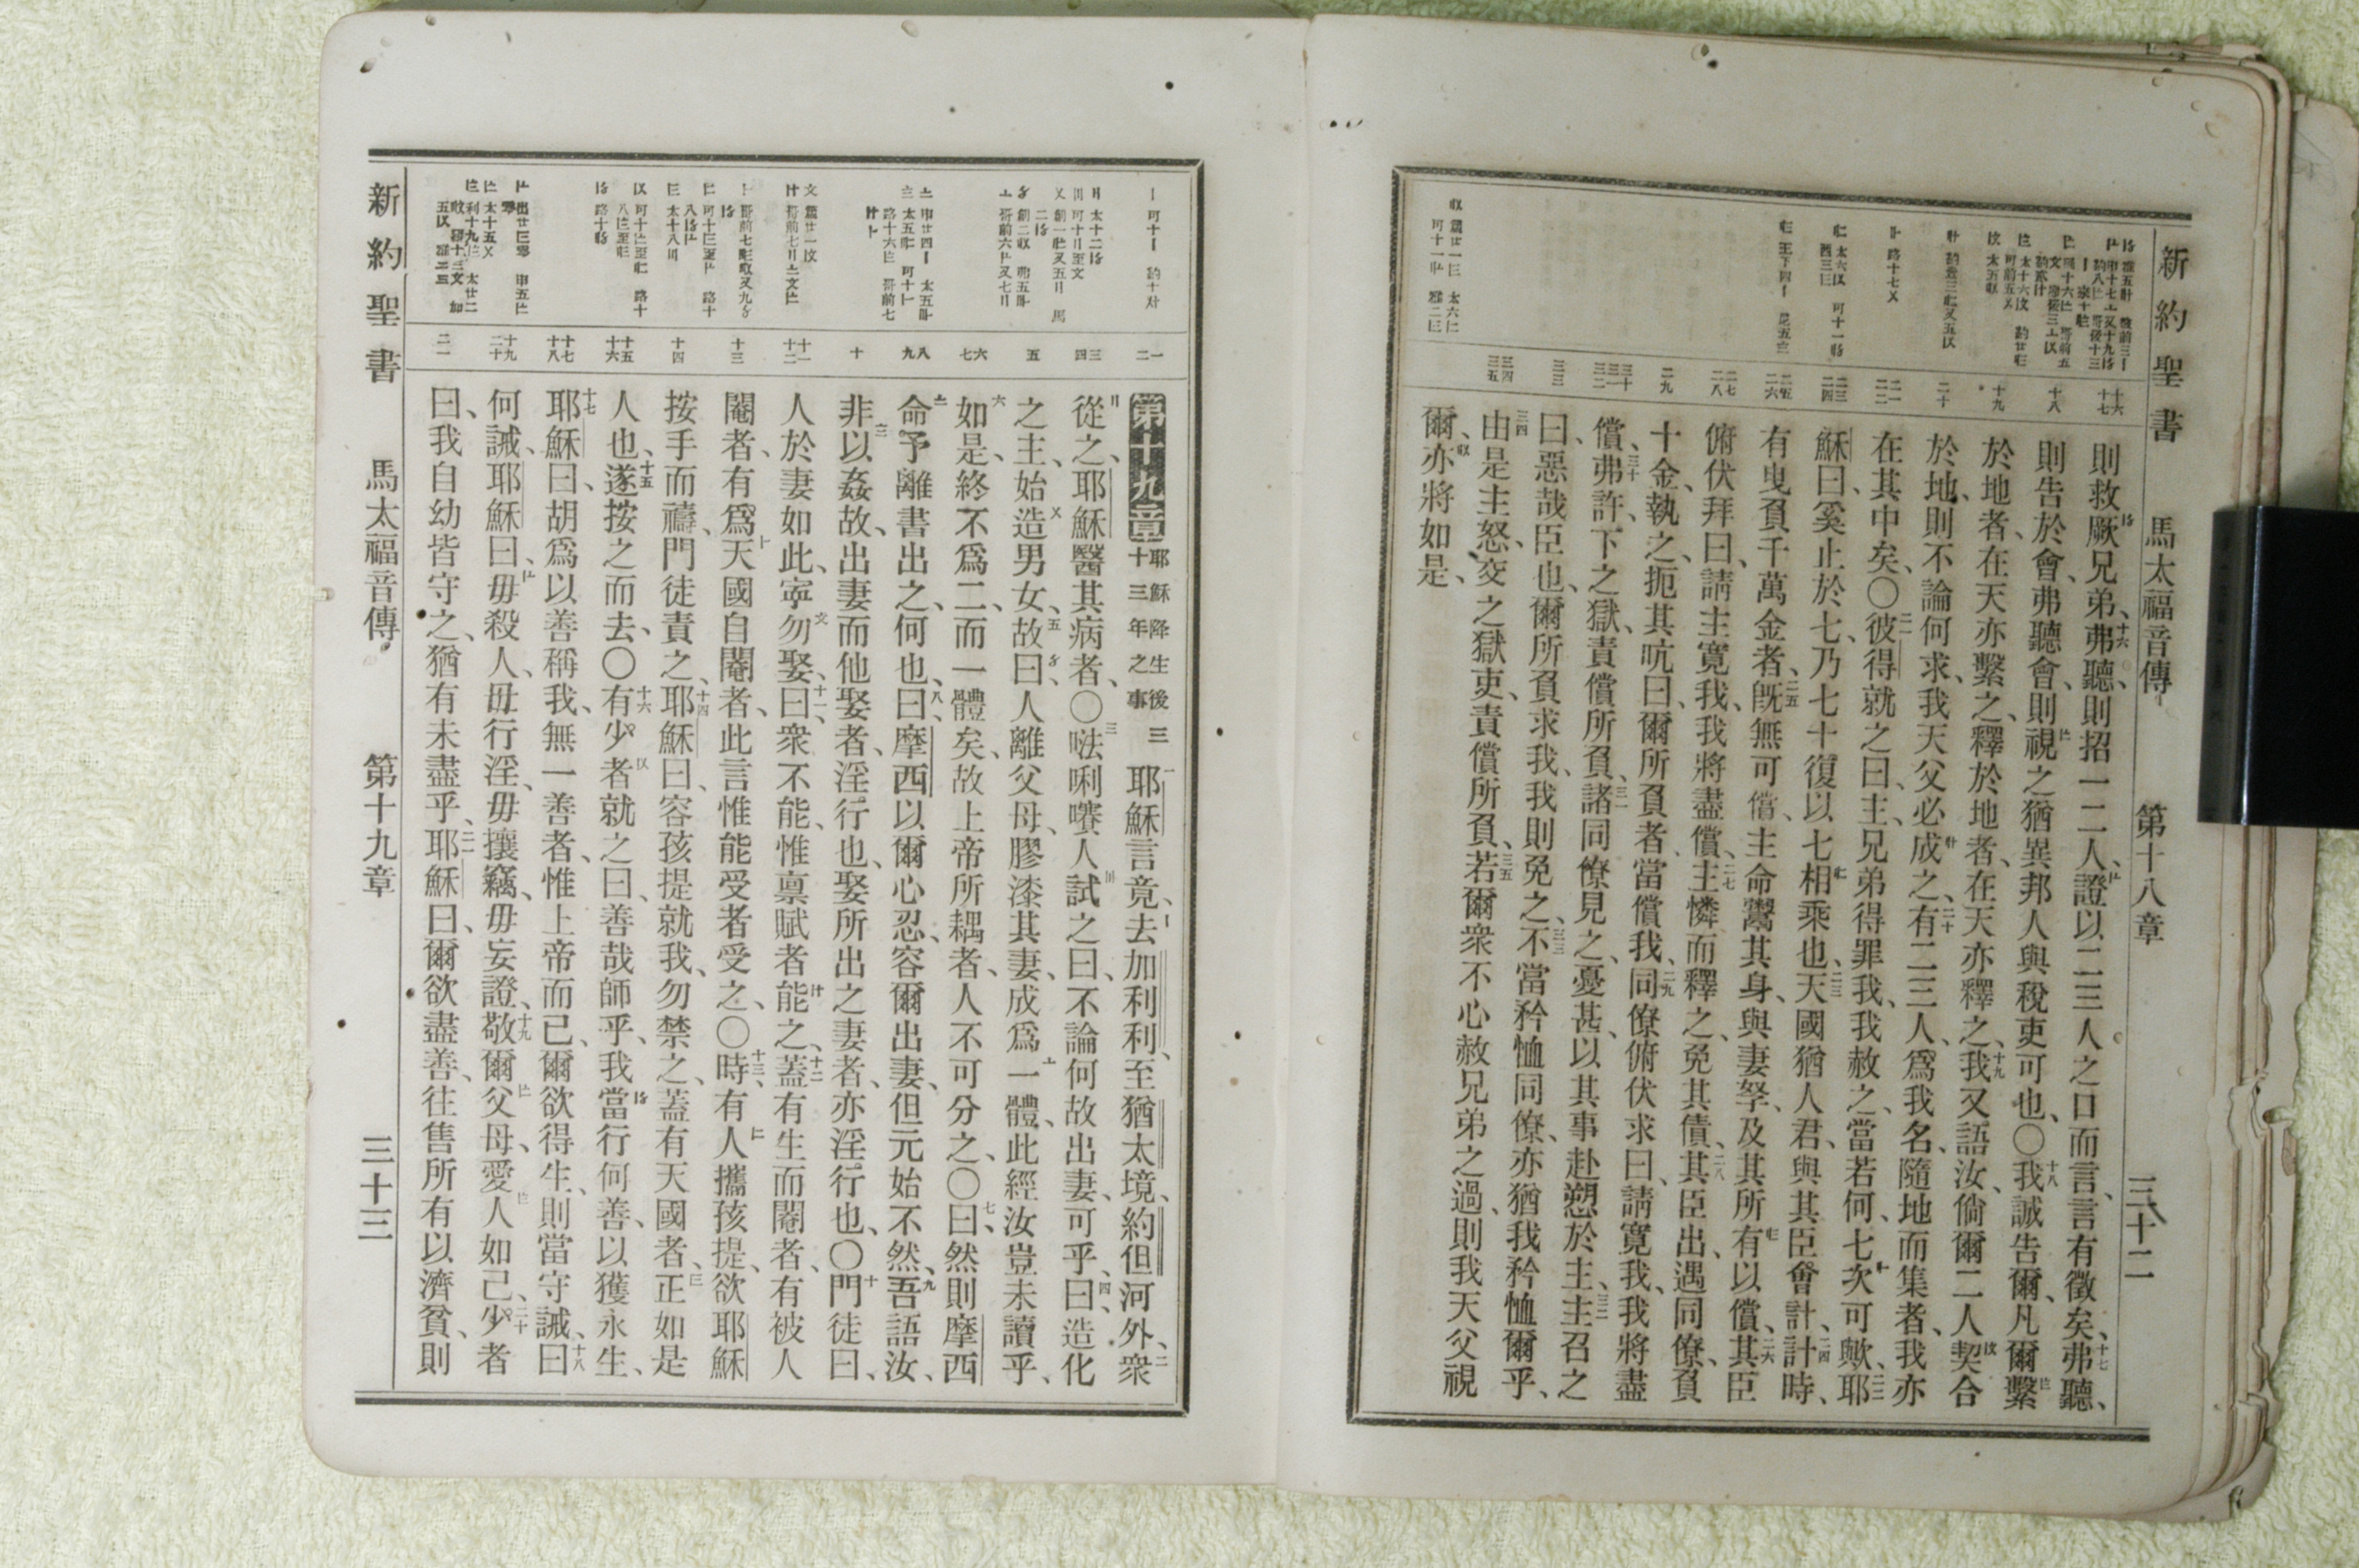 新約聖書 馬太福音傳 第十八章 三十二
十六 十七
十八
十九
二十
二一 二二
二三 二四
二五 二六
二七 二八
二九
三十 三一 三二
三三
三四 三五
則救厥兄弟、十六弗聽、則招一二人、證以二三人之口而言、言有徵矣、十七弗聽、
則告於會、弗聽會、則視之猶異邦人與稅吏可也、〇十八我誠告爾、凡爾繫
於地者、在天亦繫之、釋於地者、在天亦釋之、十九我又語汝、倘爾二人契合
於地、則不論何求、我天父必成之、二十有二三人、爲我名、隨地而集者、我亦
在其中矣、〇二一彼得就之曰、主、兄弟得罪我、我赦之、當若何、七次可歟、二二耶
穌曰、奚止於七、乃七十復以七相乘也、二三天國猶人君、與其臣會計、二四計時、
有曳負千萬金者、二五旣無可償、主命鬻其身、與妻孥、及其所有以償、二六其臣
俯伏拜曰、請主寬我、我將盡償、二七主憐而釋之、免其債、二八其臣出、遇同僚、負
十金、執之、扼其吭曰、爾所負者、當償我、二九同僚俯伏求曰、請寬我、我將盡
償、三十弗許、下之獄、責償所負、三一諸同僚見之、憂甚、以其事赴愬於主、三二主召之
曰、惡哉臣也、爾所負求我、我則免之、三三不當矜恤同僚、亦猶我矜恤爾乎、
三四由是主怒、交之獄吏、責償所負、三五若爾衆不心赦兄弟之過、則我天父視
爾、亦將如是、
一 二
三 四
五
六 七
八 九
十
十一 十二
十三
十四
十五 十六
十七 十八
十九 二十
二一
第十九章 耶穌降生後三十三年之事 一耶穌言竟、去加利利、至猶太境、約但河外、二衆
從之、耶穌醫其病者、〇三㗁唎㘔人試之曰、不論何故出妻、可乎、四曰、造化
之主、始造男女、五故曰、人離父母、膠漆其妻、成爲一體、此經汝豈未讀乎、
六如是、終不爲二、而一體矣、故上帝所耦者、人不可分之、〇七曰、然則摩西
命予離書出之、何也、八曰、摩西以爾心忍、容爾出妻、但元始不然、九吾語汝、
非以姦故、出妻而他娶者、淫行也、娶所出之妻者、亦淫行也、〇十門徒曰、
人於妻如此、寧勿娶、十一曰、衆不能、惟禀賦者能之、十二蓋有生而閹者、有被人
閹者、有爲天國自閹者、此言惟能受者受之、〇十三時、有人攜孩提、欲耶穌
按手而禱、門徒責之、十四耶穌曰、容孩提就我、勿禁之、蓋有天國者、正如是
人也、十五遂按之而去、〇十六有少者就之曰、善哉師乎、我當行何善、以獲永生、
十七耶穌曰、胡爲以善稱我、無一善者、惟上帝而已、爾欲得生、則當守誡、十八曰
何誡、耶穌曰、毋殺人、毋行淫、毋攘竊、毋妄證、十九敬爾父母、愛人如己、二十少者
曰、我自幼皆守之、猶有未盡乎、二一耶穌曰、爾欲盡善、往售所有以濟貧、則
新約聖書 馬太福音傳 第十九章 三十三